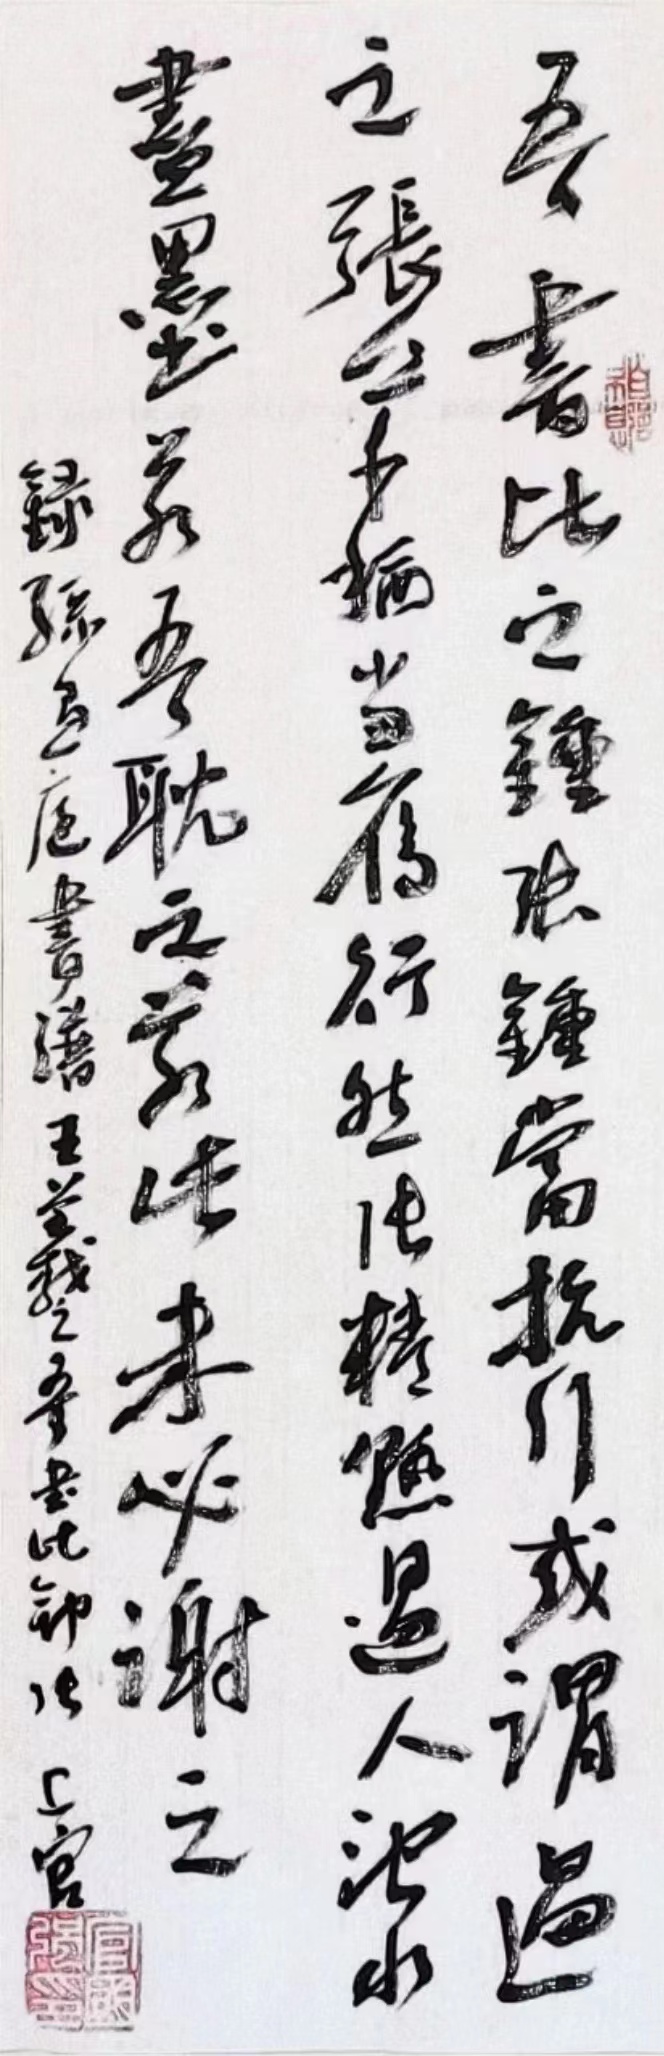 吾書比之鍾張鍾當抗行或謂過
之張公草猶當雁行然張精熟過人池水
盡墨若吾耽之若此未必謝之
錄孫過庭書譜王羲之吾書比鍾張 上官